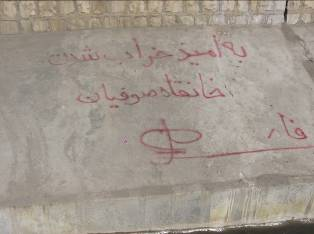 به امید خراب شدن
خانقاه صوفیان